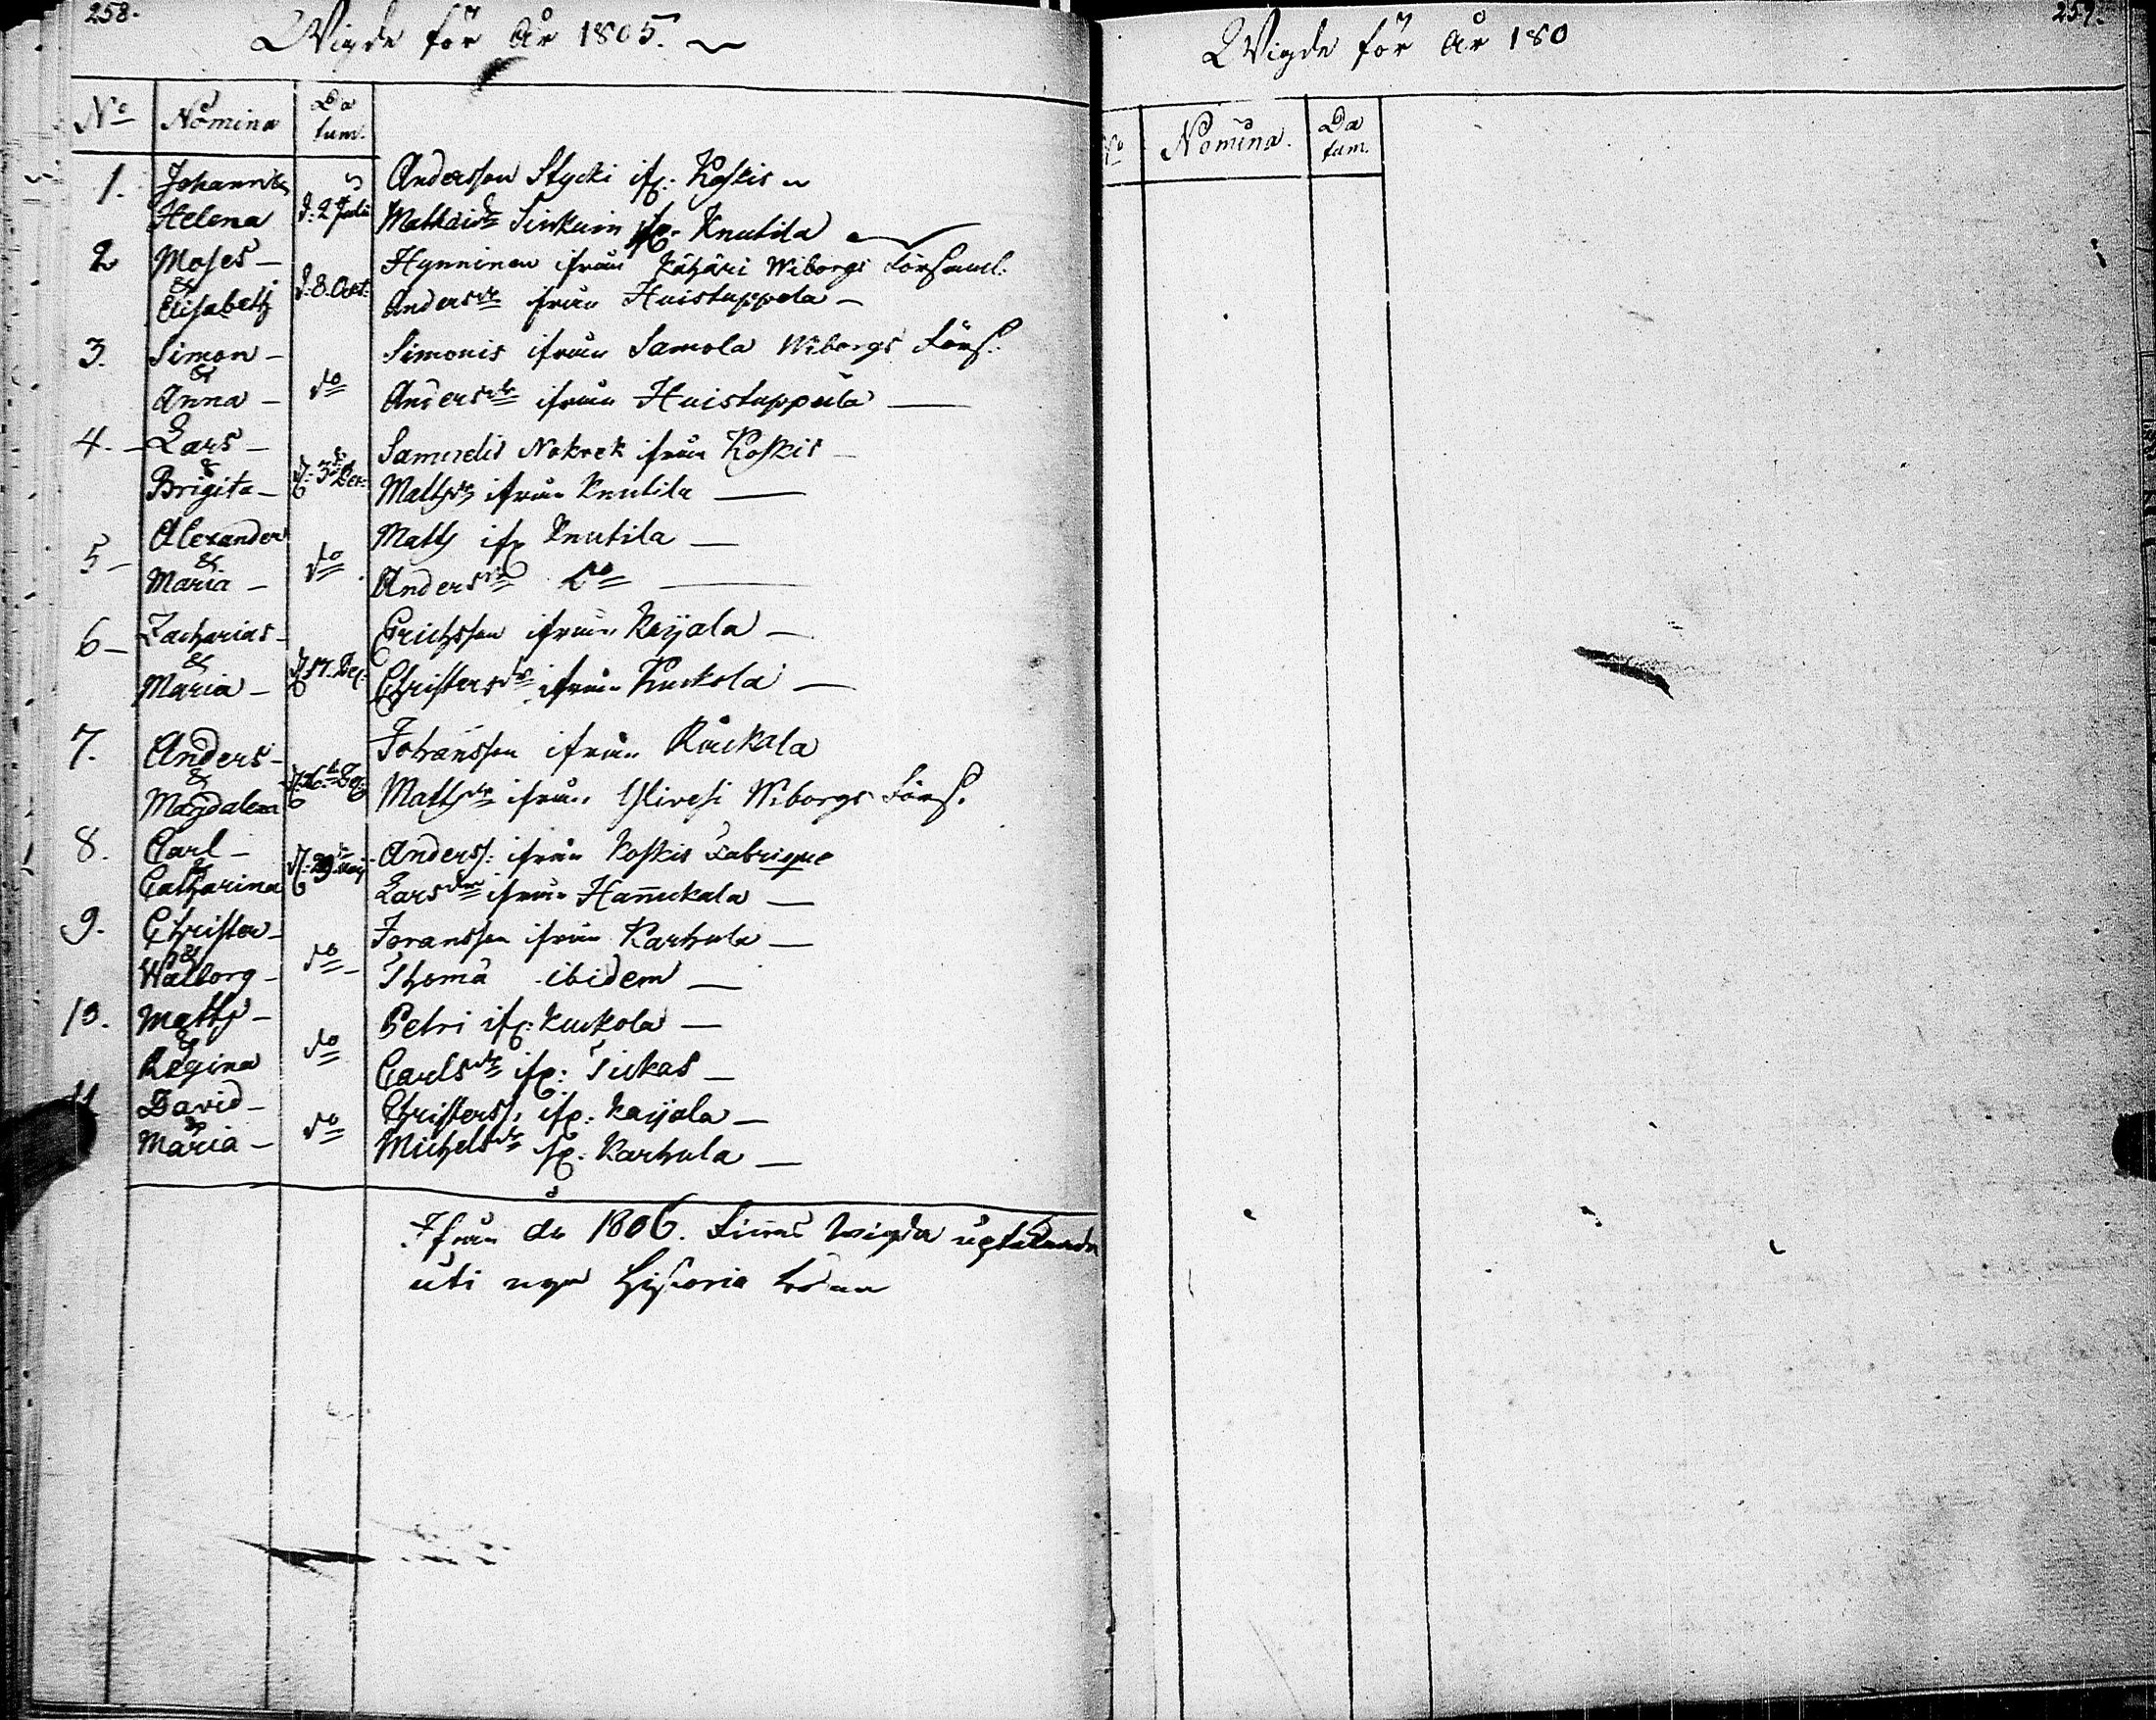 258.
Wigde för År 1805.
No Nomina Da tum.
1. Johannes Andersson Stycki ifr: Koskis
Helena d: 2 Juli Matthsdr Sinkuin ifr: Knutila
2 Moses - Hynninen ifrån Kähäri Wiborgs Församl:
& d: 8. Oct:
Elisabeth Andersdr ifrån Huistuppola -
3. Simon - Simonis ifrån Samola Wiborgs Förs:
& do
Anna - Andersdr ifrån Huistuppula -
4. - Lars - Samuelis Nokrek ifrån Koskis -
& d: 3 Dec:
Brigita - Mattsdr ifrån Knutila -
Alexander Matts ifr Knutila -
5 - & do
Maria - Andersdr Do
6 - Zacharias - Erichsson ifrån Kaijala -
& d 17. Dec:
Maria - Christersdr ifrån Kuckola -
7. Anders - Johansson ifrån Kuckala
& d: 26. Dec:
Magdalena Mattsdr ifrån Ylivesi Wiborgs Förs.
8. Carl - Anderss: ifrån Koskis Fabrique
& d: 29.
Catharina Larsdr ifrån Hanukala -
9. Christer - Joransson ifrån Karhula -
& do -
Walborg - Thomä ibidem -
10. Matts - Petri ifr: Kuckola -
& do
Regina Carlsdr ifr: Tickas -
11 David - Christerss. ifr: Kaijala -
& do
Maria - Michelsdr ifr. Karhula -
Ifrån År 1806. Finnes wigda uptecknade
uti nya Historia
259.
Wigde för År 180
No Nomina. Da tum.